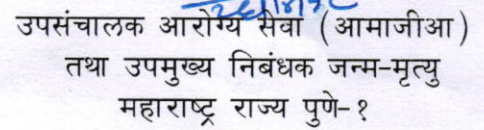 उपसंचालक आरोग्य सेवा (आमाजीआ)
तथा उपमुख्य निबंधक जन्म-मृत्यु
महाराष्ट्र राज्य पुणे-१